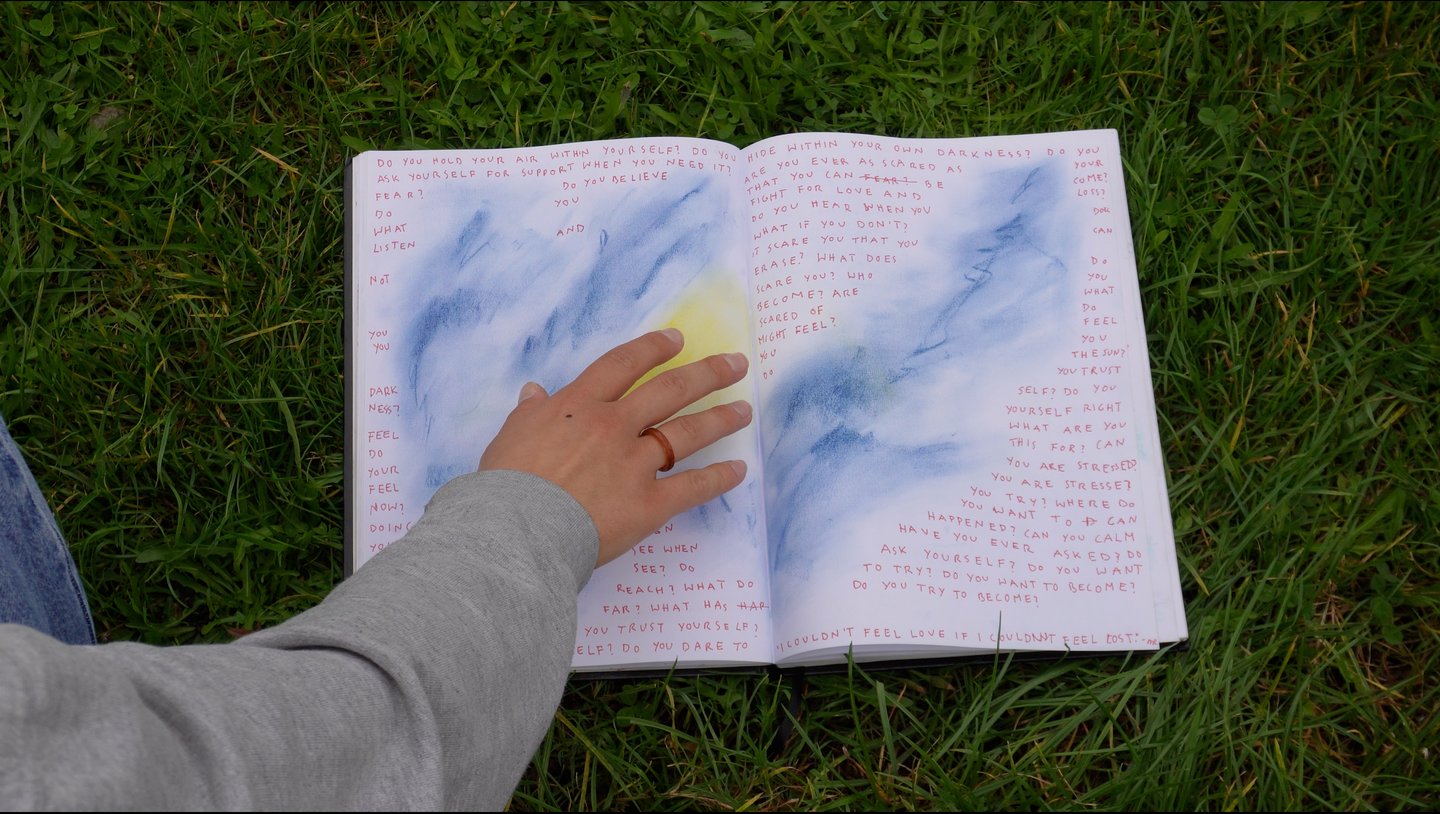 DO YOU HOLD YOUR AIR WITHIN YOURSELF? DO YOU
ASK YOURSELF FOR SUPPORT WHEN YOU NEED IT?
FEAR? DO YOU BELIEVE
DO YOU
WHAT AND
LISTEN
NOT
YOU
YOU
DARK
NESS?
FEEL
DO
YOUR
FEEL
NOW?
DOING
SEE WHEN
SEE? DO
REACH? WHAT DO
FAR? WHAT HAS HAR
YOU TRUST YOURSELF?
ELF? DO YOU DARE TO
HIDE WITHIN YOUR OWN DARKNESS? DO YOU
ARE YOU EVER AS SCARED AS YOUR
THAT YOU CAN FEAR? BE COME?
FIGHT FOR LOVE AND LOSS?
DO YOU HEAR WHEN YOU
WHAT IF YOU DON'T? CAN
IT SCARE YOU THAT YOU
ERASE? WHAT DOES DO
SCARE YOU? WHO YOU
BECOME? ARE WHAT
SCARED OF DO
MIGHT FEEL? FEEL
YOU YOU
DO THE SUN?
YOU TRUST
SELF? DO YOU
YOURSELF RIGHT
WHAT ARE YOU
THIS FOR? CAN
YOU ARE STRESSED?
YOU ARE STRESSE?
YOU TRY? WHERE DO
YOU WANT TO CAN
HAPPENED? CAN YOU CALM
HAVE YOU EVER ASKED? DO
ASK YOURSELF? DO YOU WANT
TO TRY? DO YOU WANT TO BECOME?
DO YOU TRY TO BECOME?
"I COULDN'T FEEL LOVE IF I COULDN'T FEEL LOST."